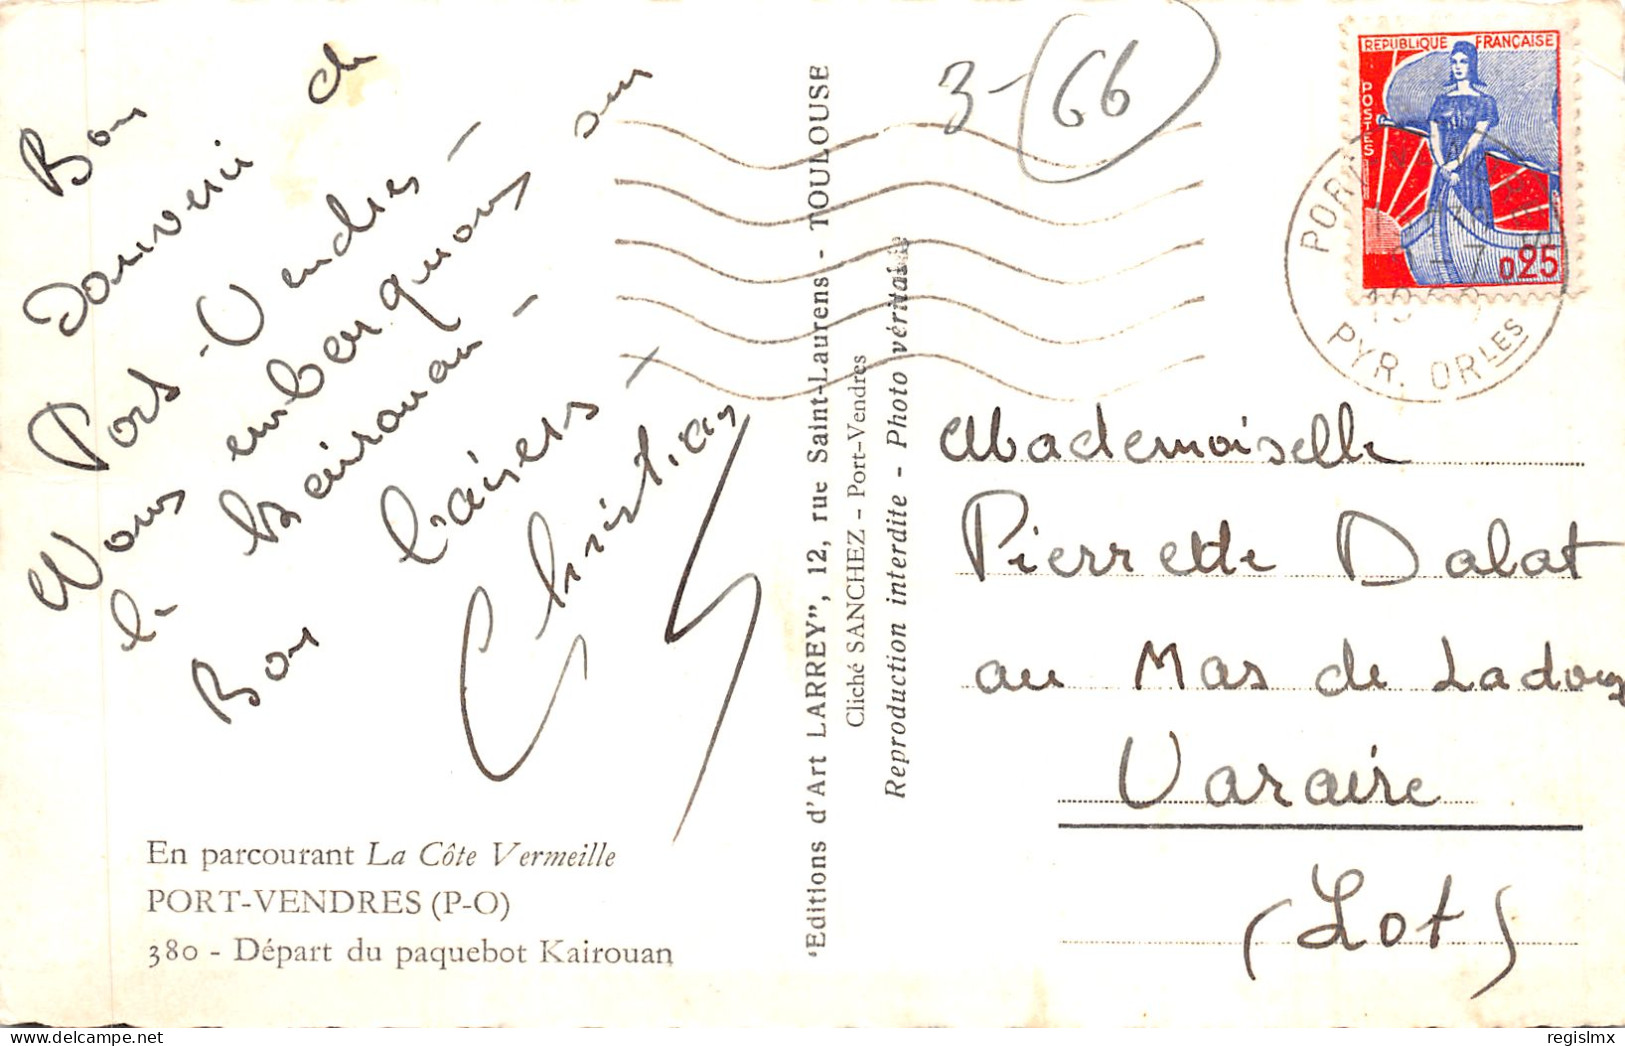 Bon
Souvenir de
Port-Vendres -
Nous embarquons sur
le Kairouan -
Bon baisers -
Christian
En parcourant La Côte Vermeille
PORT-VENDRES (P-O)
380 - Départ du paquebot Kairouan
"Editions d'Art LARREY", 12, rue Saint-Laurens - TOULOUSE
Cliché SANCHEZ - Port-Vendres
Reproduction interdite - Photo véritable
3-66
REPUBLIQUE FRANÇAISE
POSTES
0,25
PYR. ORLES
Mademoiselle
Pierrette Dalat
au Mas de
Varaire
(Lot)
regislmx